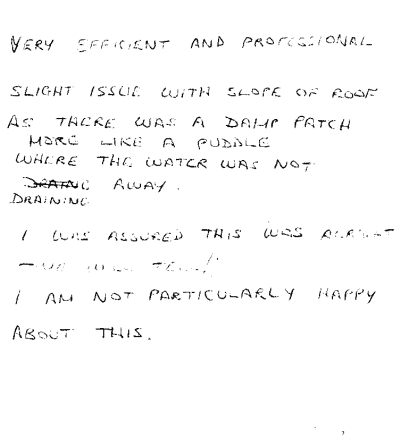 VERY EFFICIENT AND PROFESSIONAL
SLIGHT ISSUE WITH SLOPE OF ROOF
AS THERE WAS A DAMP PATCH
MORE LIKE A PUDDLE
WHERE THE WATER WAS NOT
AWAY.
DRAINING
I WAS ASSURED THIS WAS
I AM NOT PARTICULARLY HAPPY
ABOUT THIS.